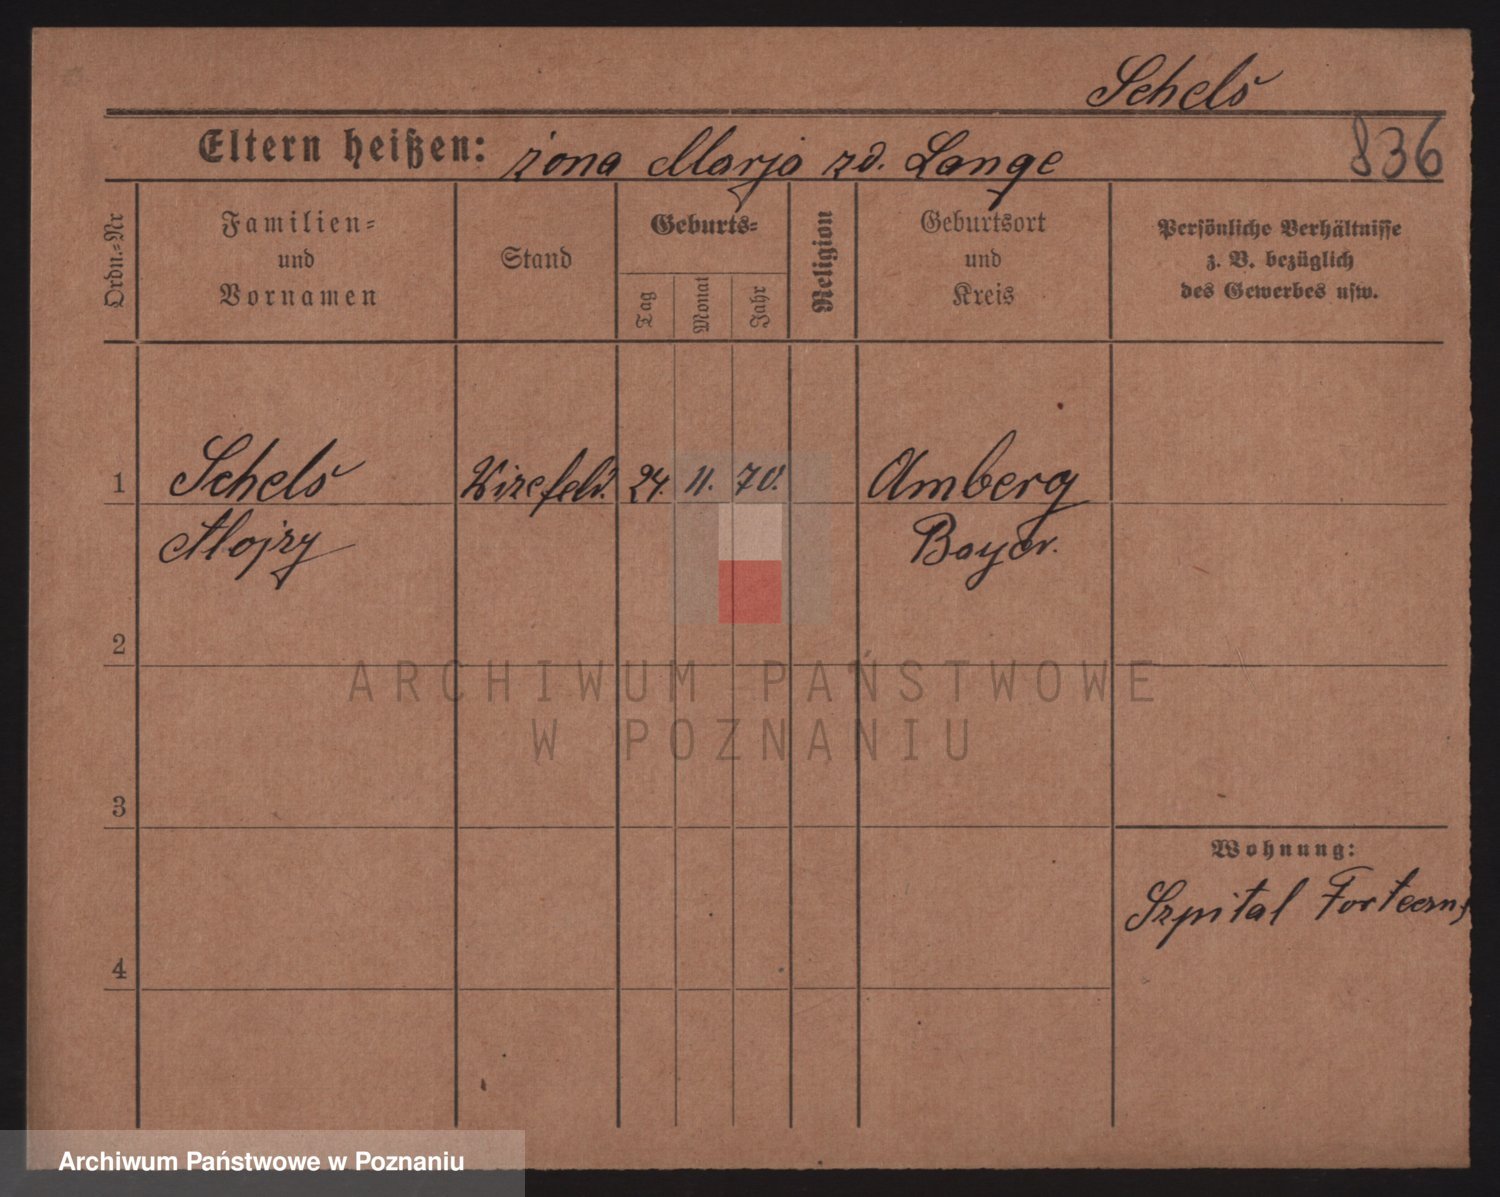 Schelś
Eltern heißen: żona Marja zd. Lange
836
Ordn.=Nr
Familien=
und
Vornamen
Stand
Geburts=
Tag
Monat
Jahr
Religion
Geburtsort
und
Kreis
Persönliche Verhältnisse
z. B. bezüglich
des Gewerbes usw.
1
Schelś
Wizefeld.
24.
11.
70.
Amberg
Alojzy
Bayer.
2
ARCHIWUM PAŃSTWOWE
W POZNANIU
3
Wohnung:
Szpital Forteczny
4
Archiwum Państwowe w Poznaniu